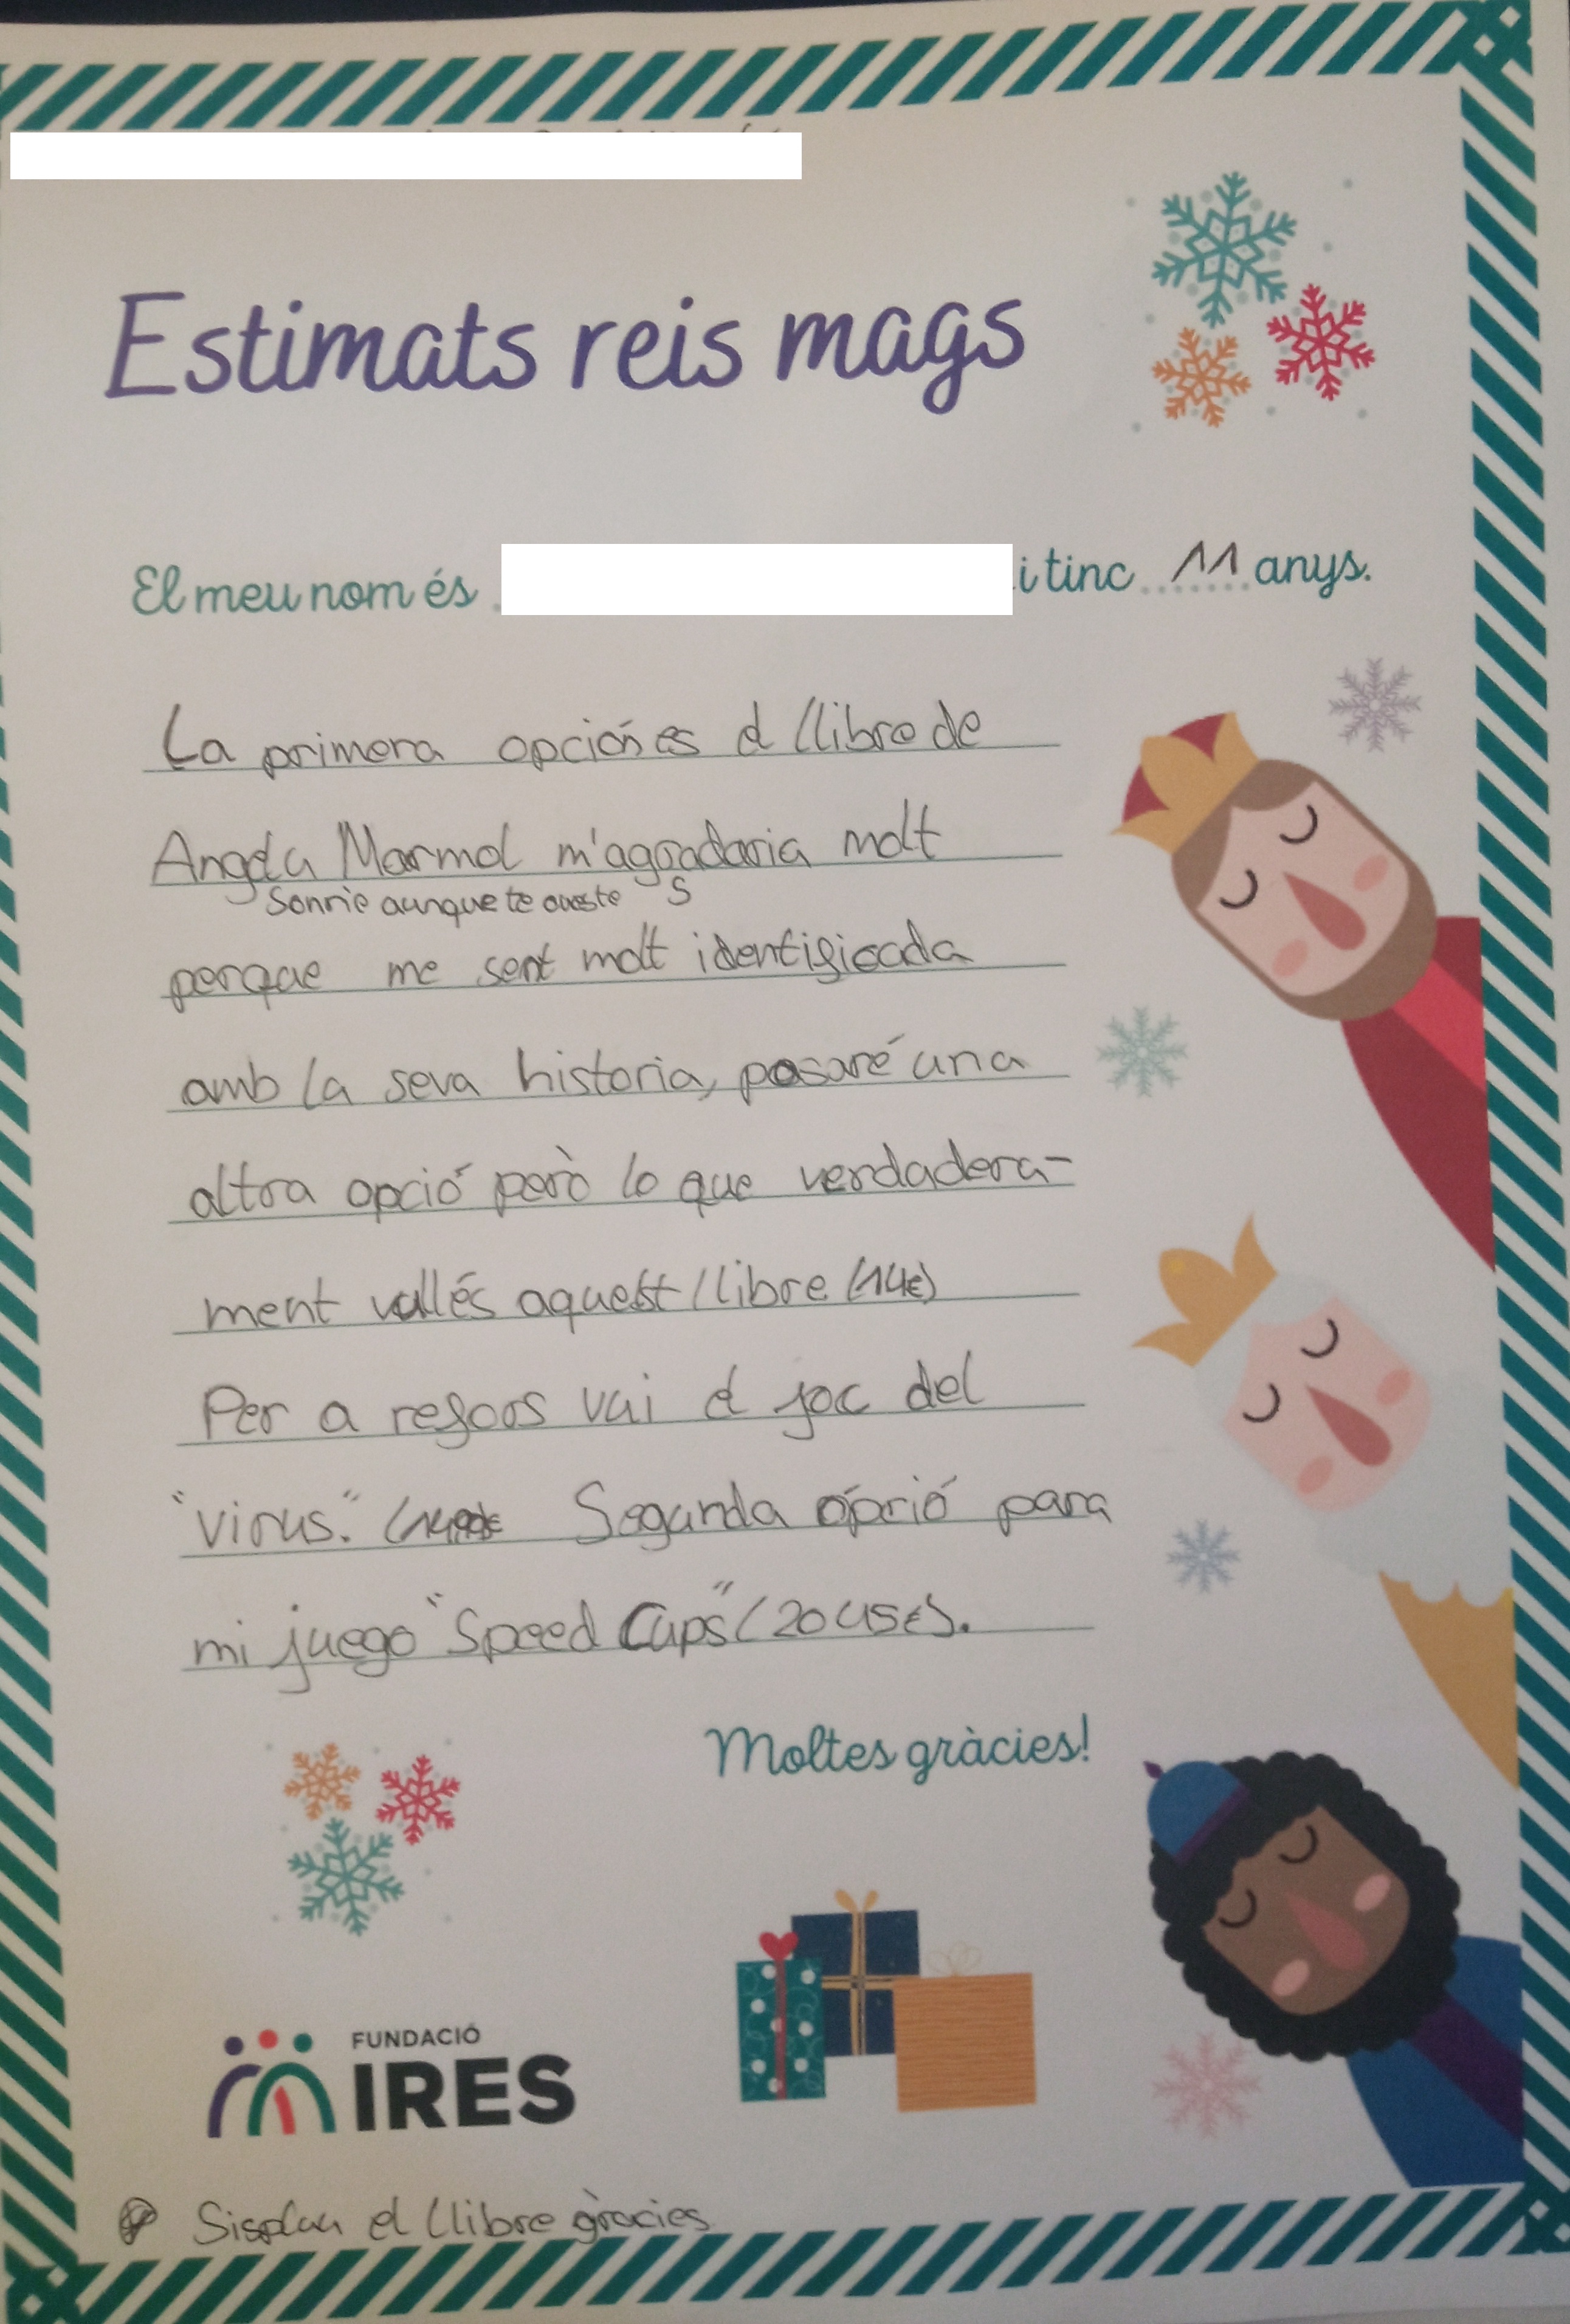 Estimats reis mags
El meu nom és i tinc 11 anys.
La primera opción es el llibre de
Angela Marmol m'agradaria molt
Sonrie aunque te cueste S
perque me sent molt identificada
amb la seva historia, posaré una
altra opció però lo que verdadera-
ment vull és aquest llibre (14€)
Per a reforos vui el joc del
"virus." Segunda opció para
mi juego "Speed Cups" (20 45€).
Moltes gràcies!
FUNDACIÓ
IRES
Sisplau el llibre gràcies